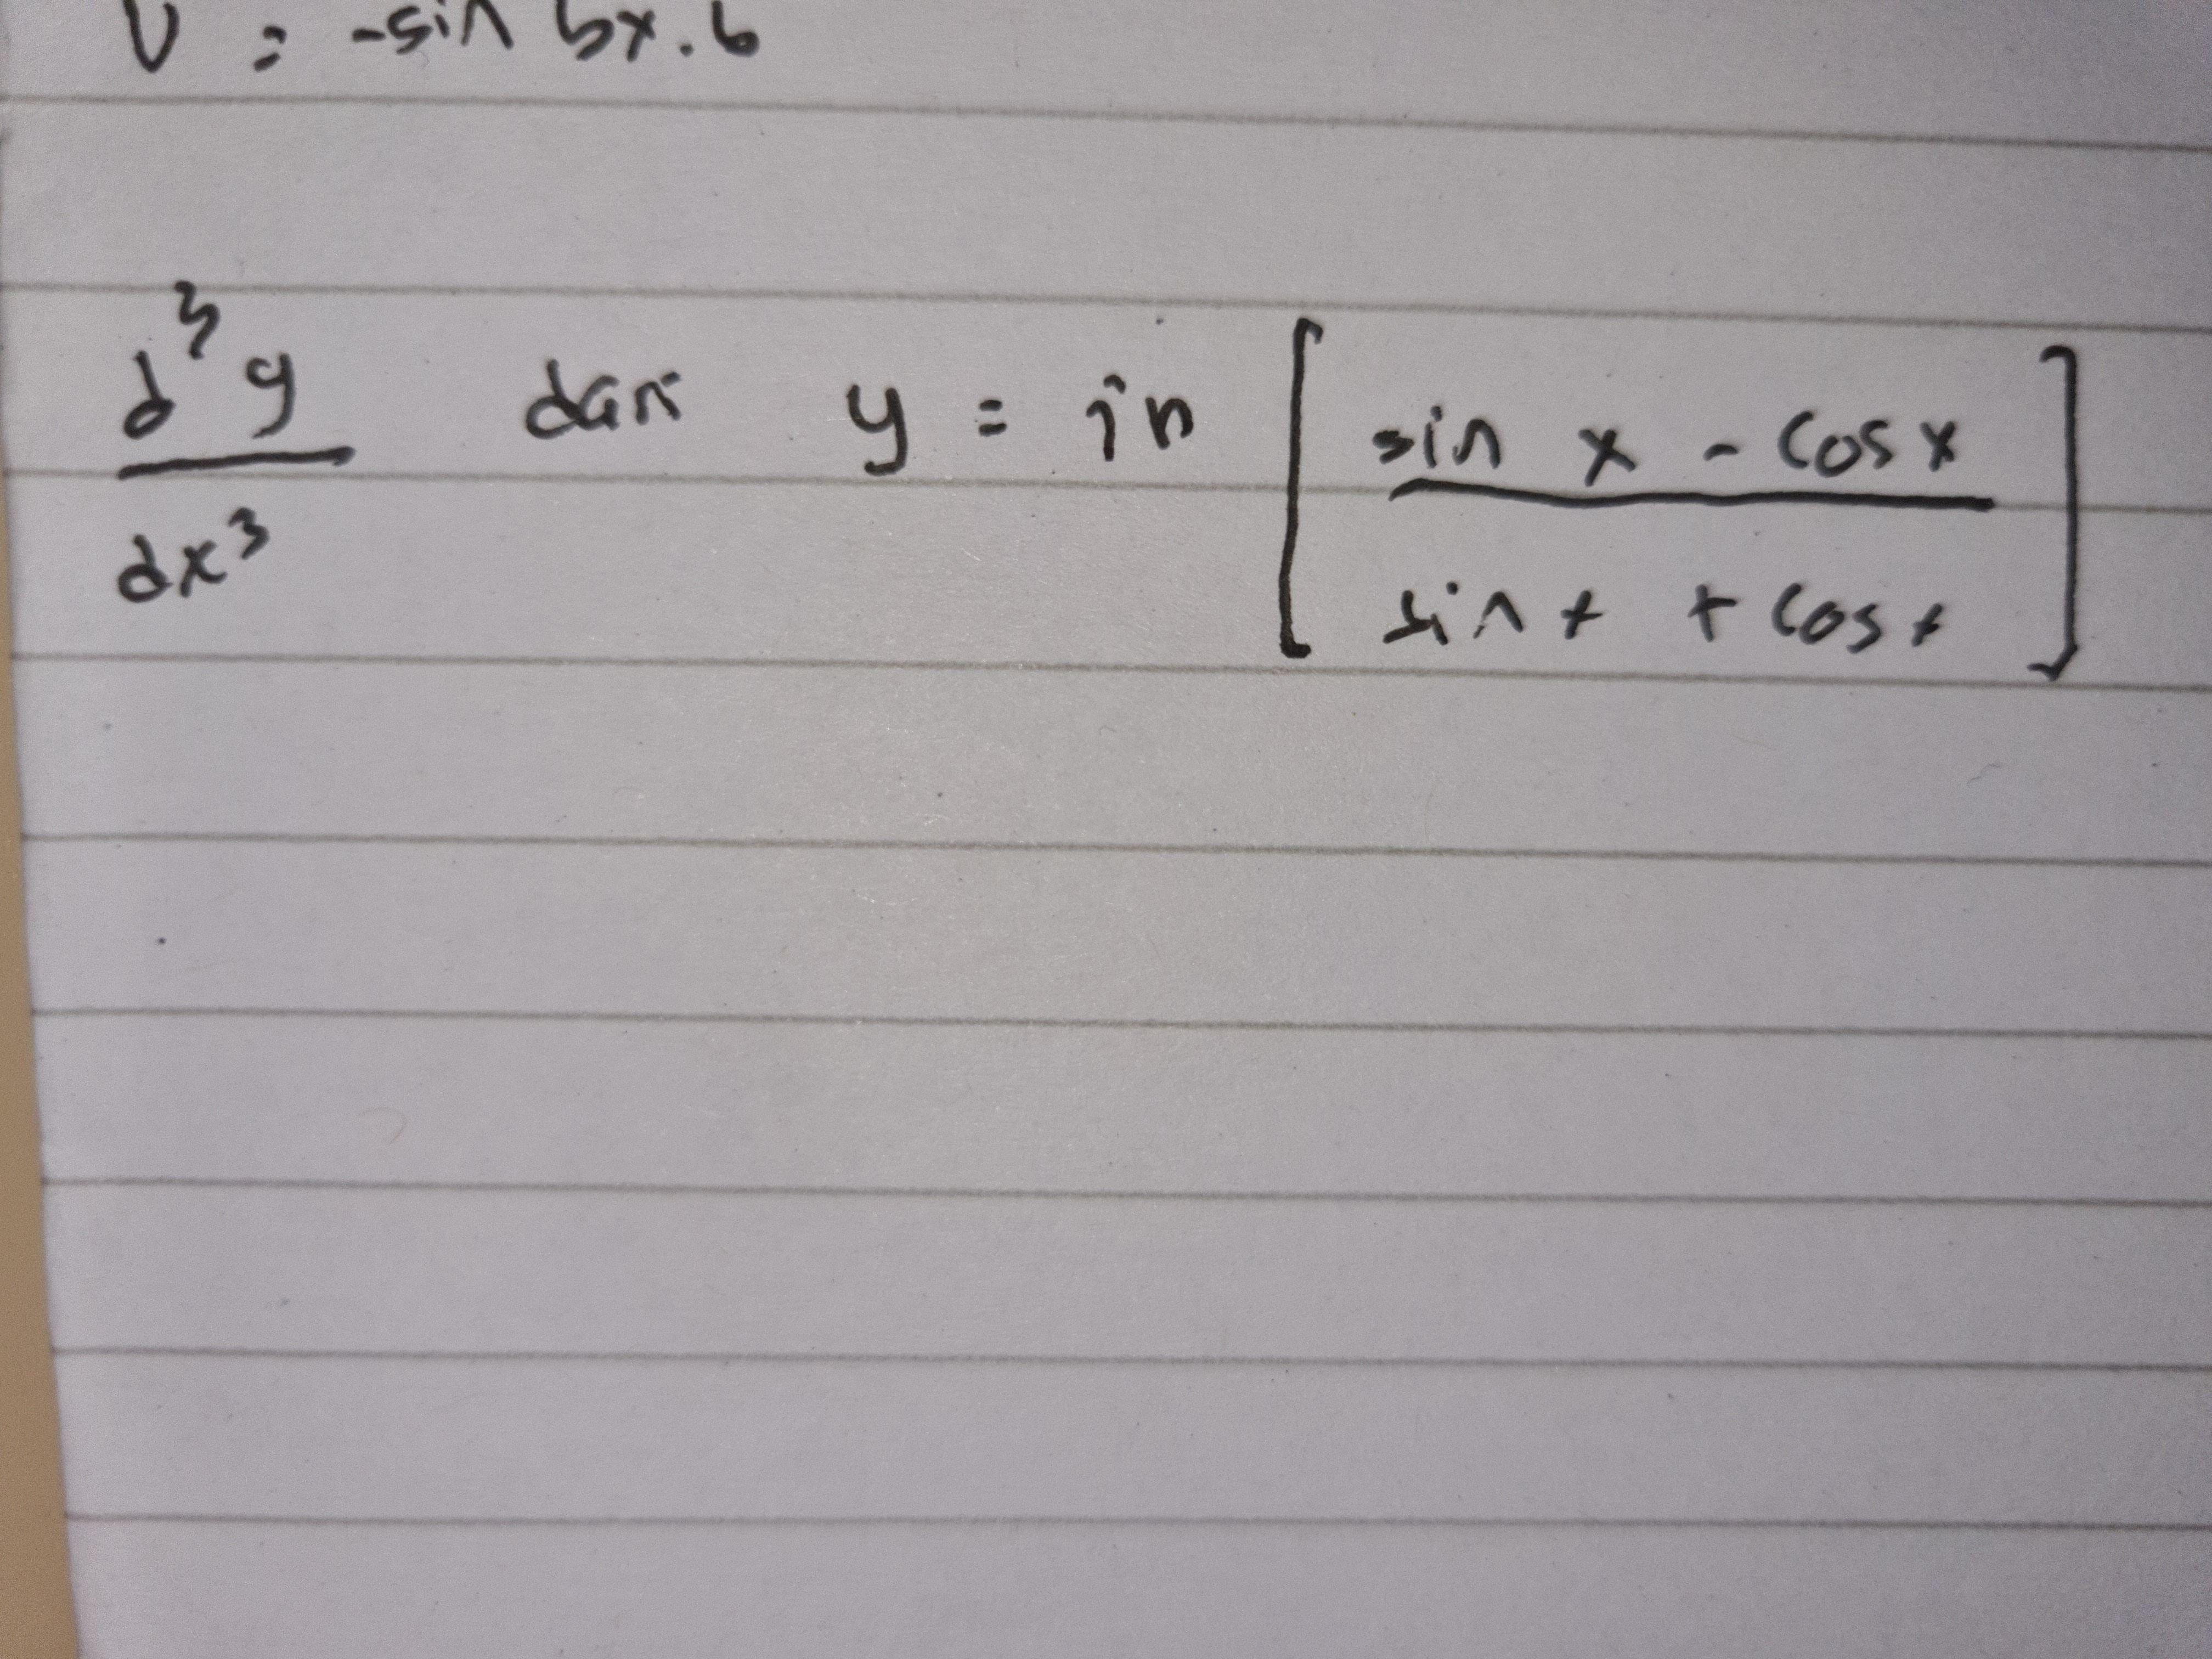 = -sin bx . b
d³y/dx³ dari y = in [ sin x - cos x / sin x + cos x ]